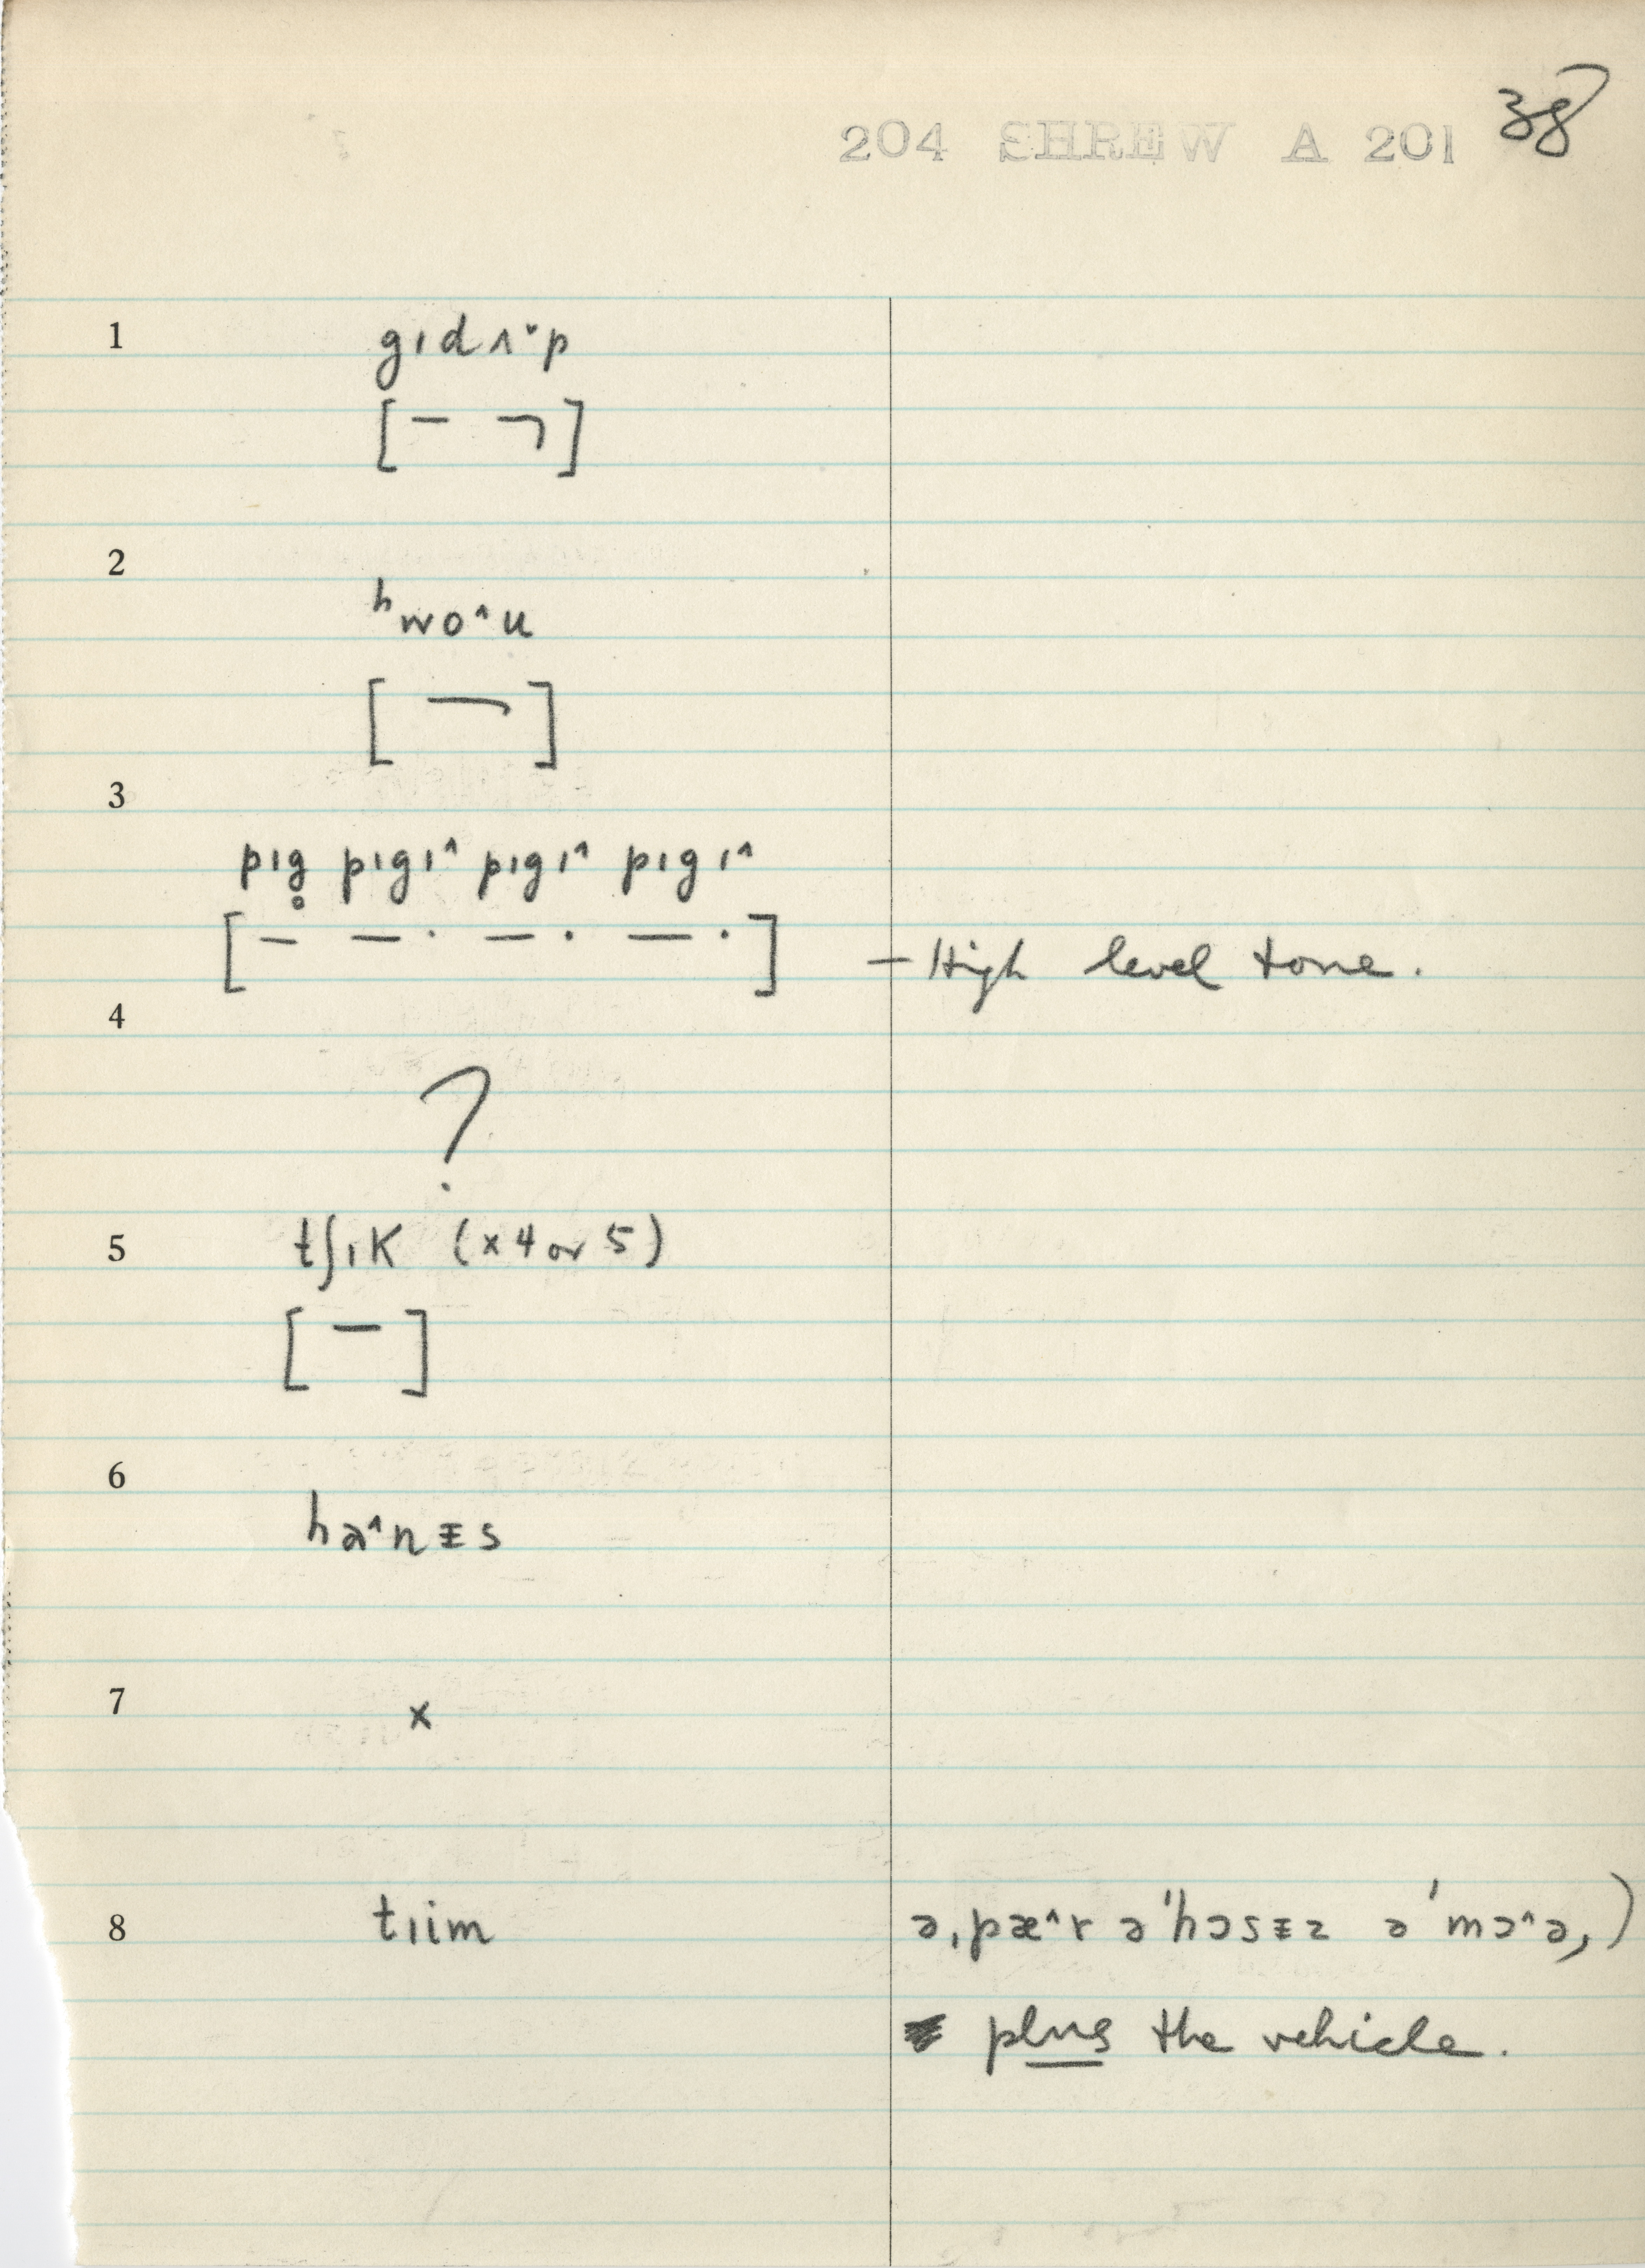 204 SHREW A 201 38
1 gıdʌ˅p
[ – ¬ ]
2
ʰwo^u
[ ¬ ]
3
pıg̥ pıgı^ pıgı^ pıgı^
[ – –· –· –· ] – High level tone.
4
?
5 tʃıK (x 4 or 5)
[ – ]
6
hɚ^nɪs
7 x
8 tıim ə,pæ^r ə'hɔsɪz ə'mɔ^ə,)
plus the vehicle.